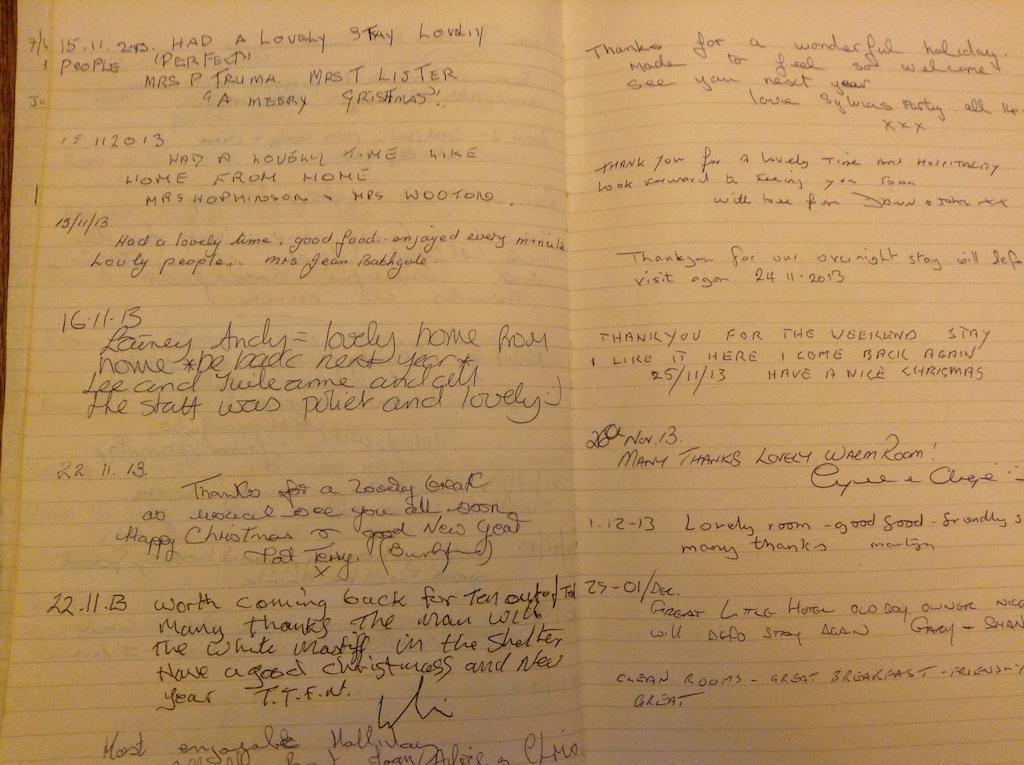 15.11.213. HAD A LOVELY STAY LOVELY
PEOPLE "PERFECT"
MRS P TRUMA. MRS T LISTER
"A MEERY GRISTMAS"
15 11 2013
HAD A LOVELY TIME LIKE
HOME FROM HOME
MRS HOPKINSON & MRS WOOTON.
15/11/13
Had a lovely time, good food. enjoyed every minute
Lovely people.. Mrs Jean Bathgate.
16.11.13
Andy = lovely home from
home *be back next year*
Lee and Julieanne and all
the staff was poliet and lovely :)
22.11.13.
Thanks for a lovely break
as usual see you all soon
Happy Christmas & good New Year
Pat Terry.
x
22.11.13 worth coming back for Ten out of Ten
Many thanks The man with
the white Mastiff in the shelter
Have a good Christmass and New
year T.T.F.N.
Most enjoyable Holliday
Thanks for a wonderful holiday.
Made to feel so welcome
see you next year
love Sylvias Party all 14
xxx
THANK you for A lovely Time and HOSPITALITY
Look forward to seeing you soon
with love from Dawn & John xx
Thankyou for our overnight stay will defo
visit again 24 11.2013
THANKYOU FOR THE WEEKEND STAY
I LIKE IT HERE I COME BACK AGAIN
25/11/13 HAVE A NICE CHRISMAS
Nov. 13.
MANY THANKS LOVELY WARM ROOM!
1-12-13 Lovely room - good food - friendly
many thanks martyn
29-01/Dec.
GREAT LITTLE HOTEL OLD BOY OWNER NICE
will DEFO STAY AGAIN GARY +
CLEAN ROOMS - GREAT BREAKFAST - FRIENDLY
GREAT